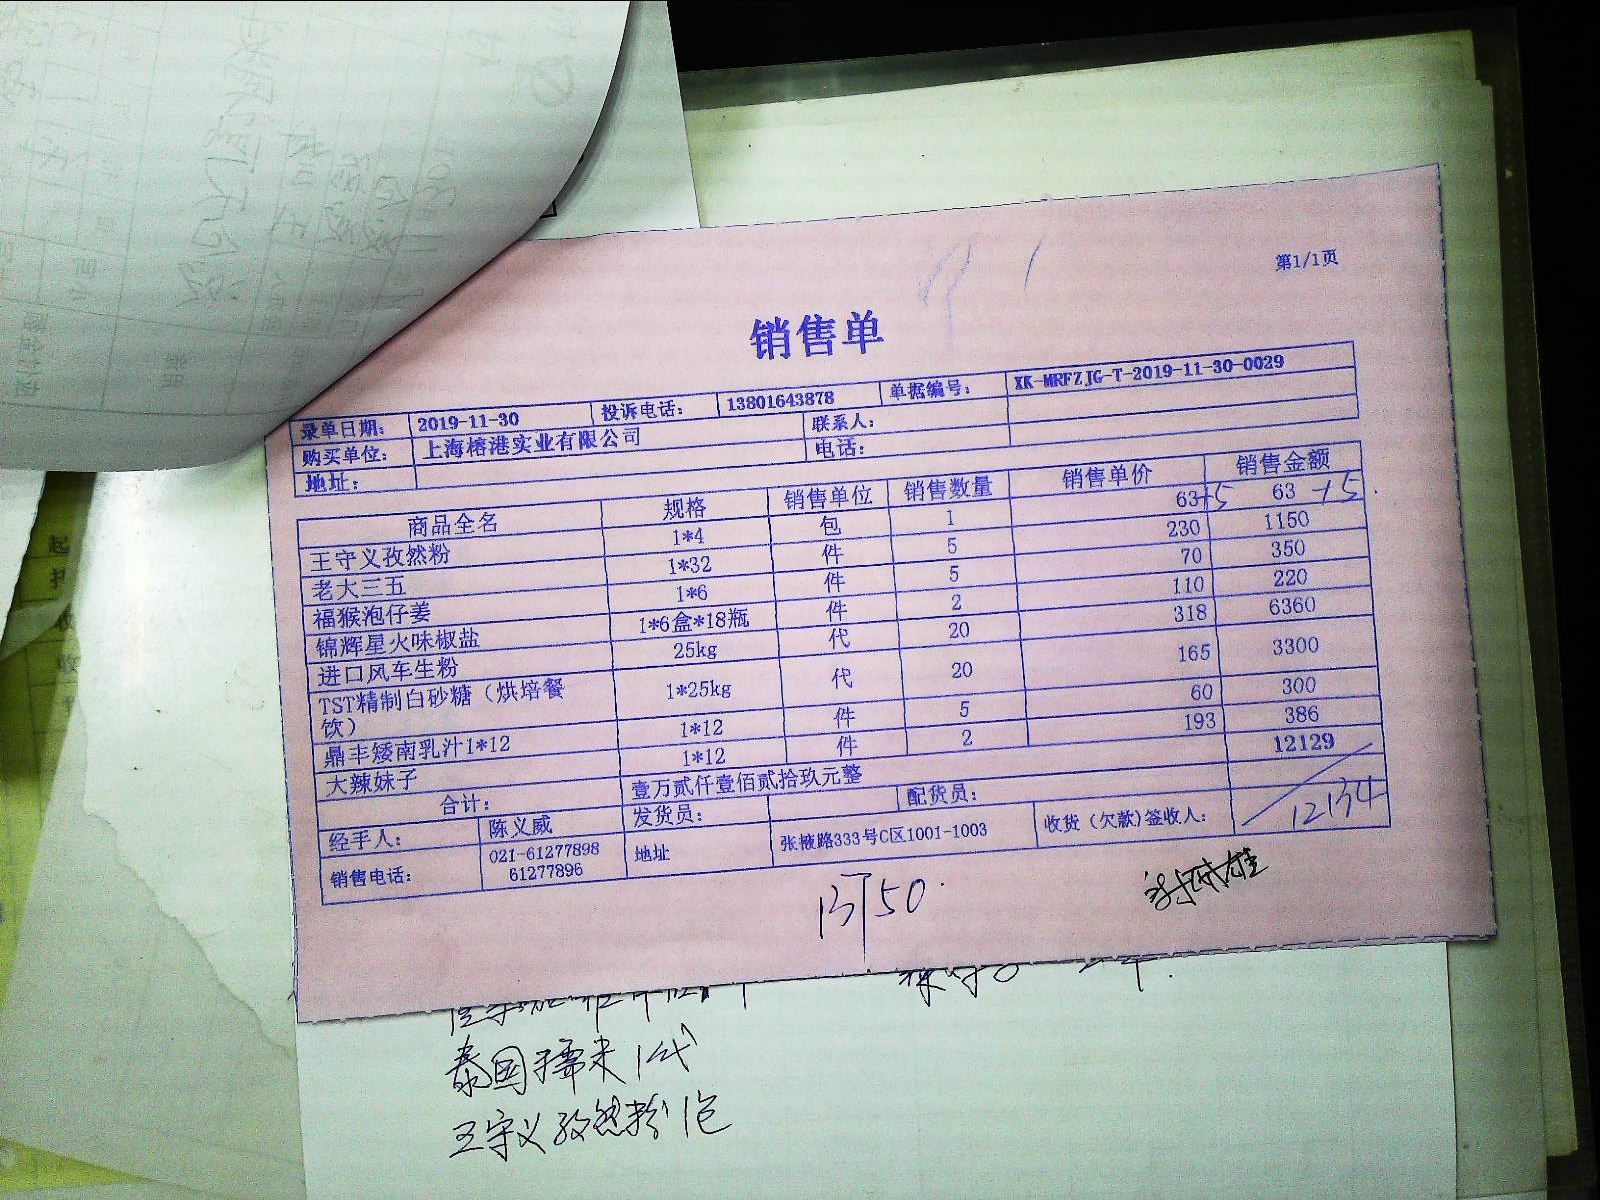 第1/1页
销售单
录单日期: 2019-11-30 投诉电话: 13801643878 单据编号: XK-MRFZJG-T-2019-11-30-0029
购买单位: 上海榕港实业有限公司 联系人:
地址: 电话:
商品全名 规格 销售单位 销售数量 销售单价 销售金额
王守义孜然粉 1*4 包 1 63+5 63 +5
老大三五 1*32 件 5 230 1150
福猴泡仔姜 1*6 件 5 70 350
锦辉星火味椒盐 1*6盒*18瓶 件 2 110 220
进口风车生粉 25kg 代 20 318 6360
TST精制白砂糖（烘培餐饮） 1*25kg 代 20 165 3300
鼎丰矮南乳汁1*12 1*12 件 5 60 300
大辣妹子 1*12 件 2 193 386
合计: 壹万贰仟壹佰贰拾玖元整 12129
经手人: 陈义威 发货员: 配货员:
销售电话: 021-61277898 61277896 地址 张掖路333号C区1001-1003 收货（欠款)签收人: 12134
13 50
泰国糯米1代
王守义孜然粉1包